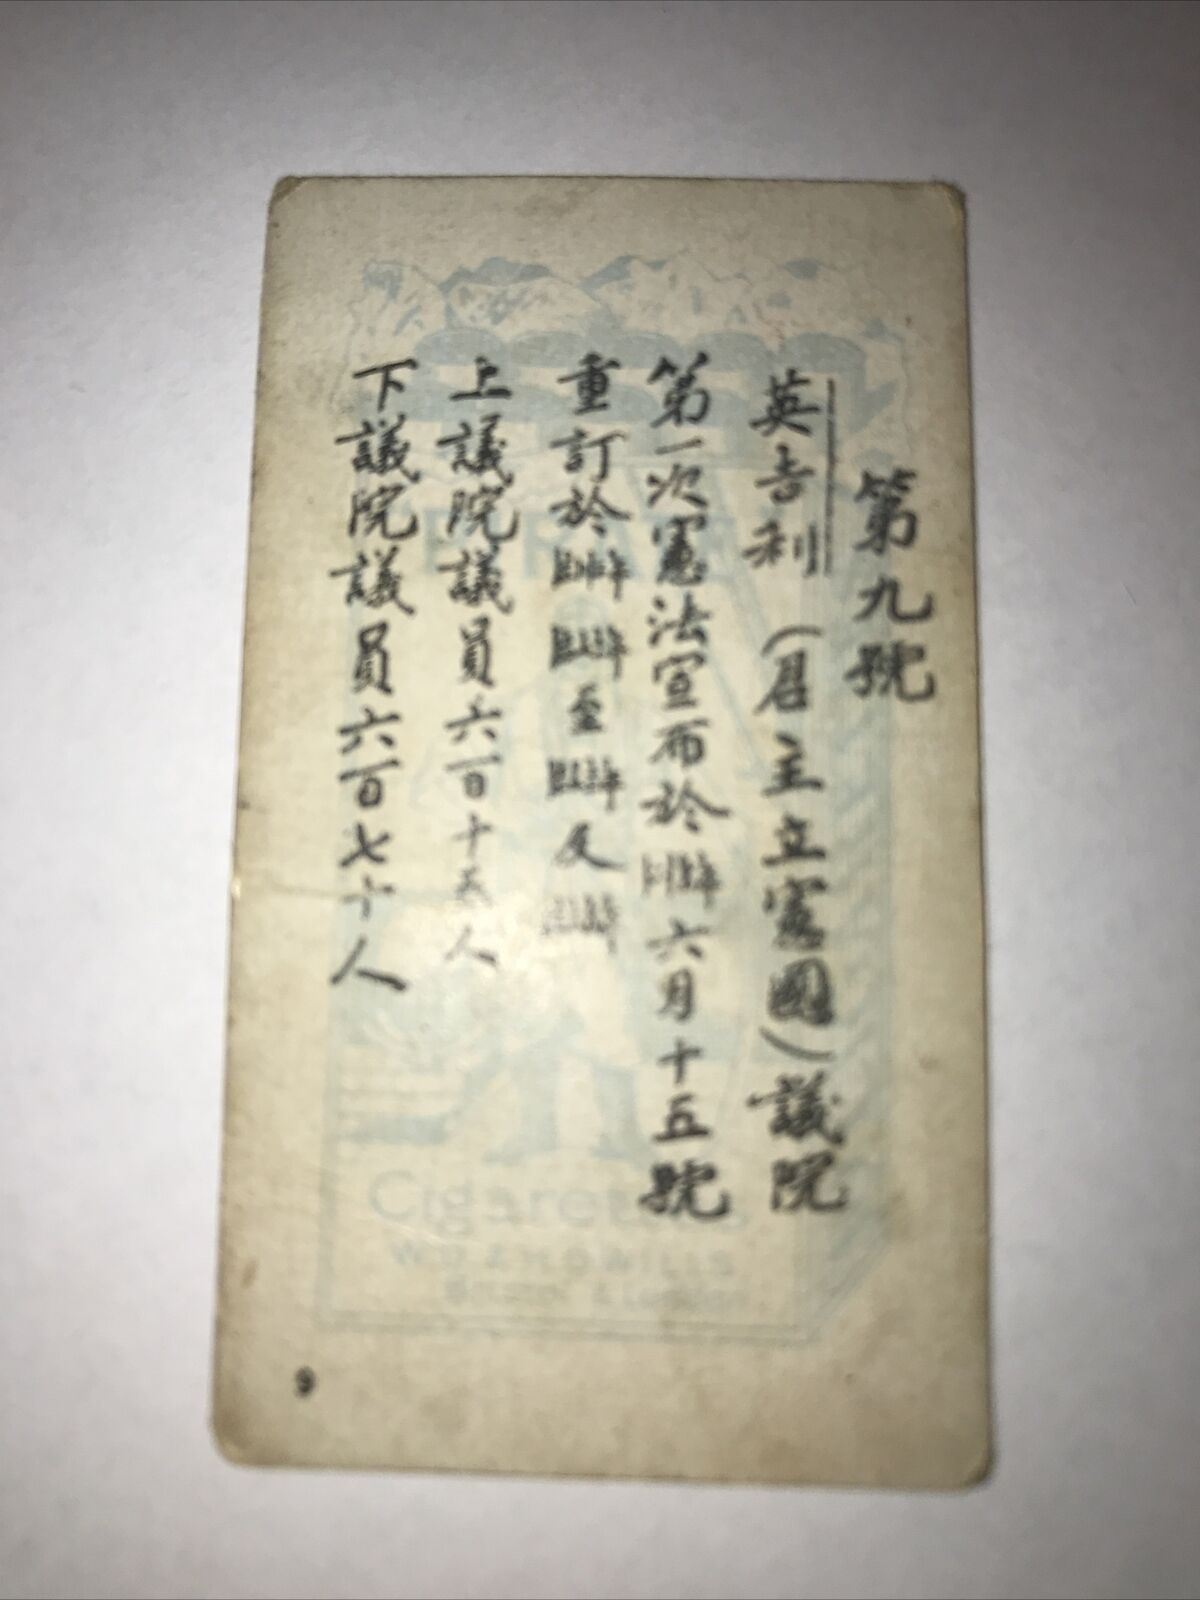 第九號
英吉利（君主立憲國）議院
第一次憲法宣布於年六月十五號
重訂於年年至年及年
上議院議員六百十五人
下議院議員六百七十人
Cigarettes
W.D. & H.O. WILLS
Bristol & London
9